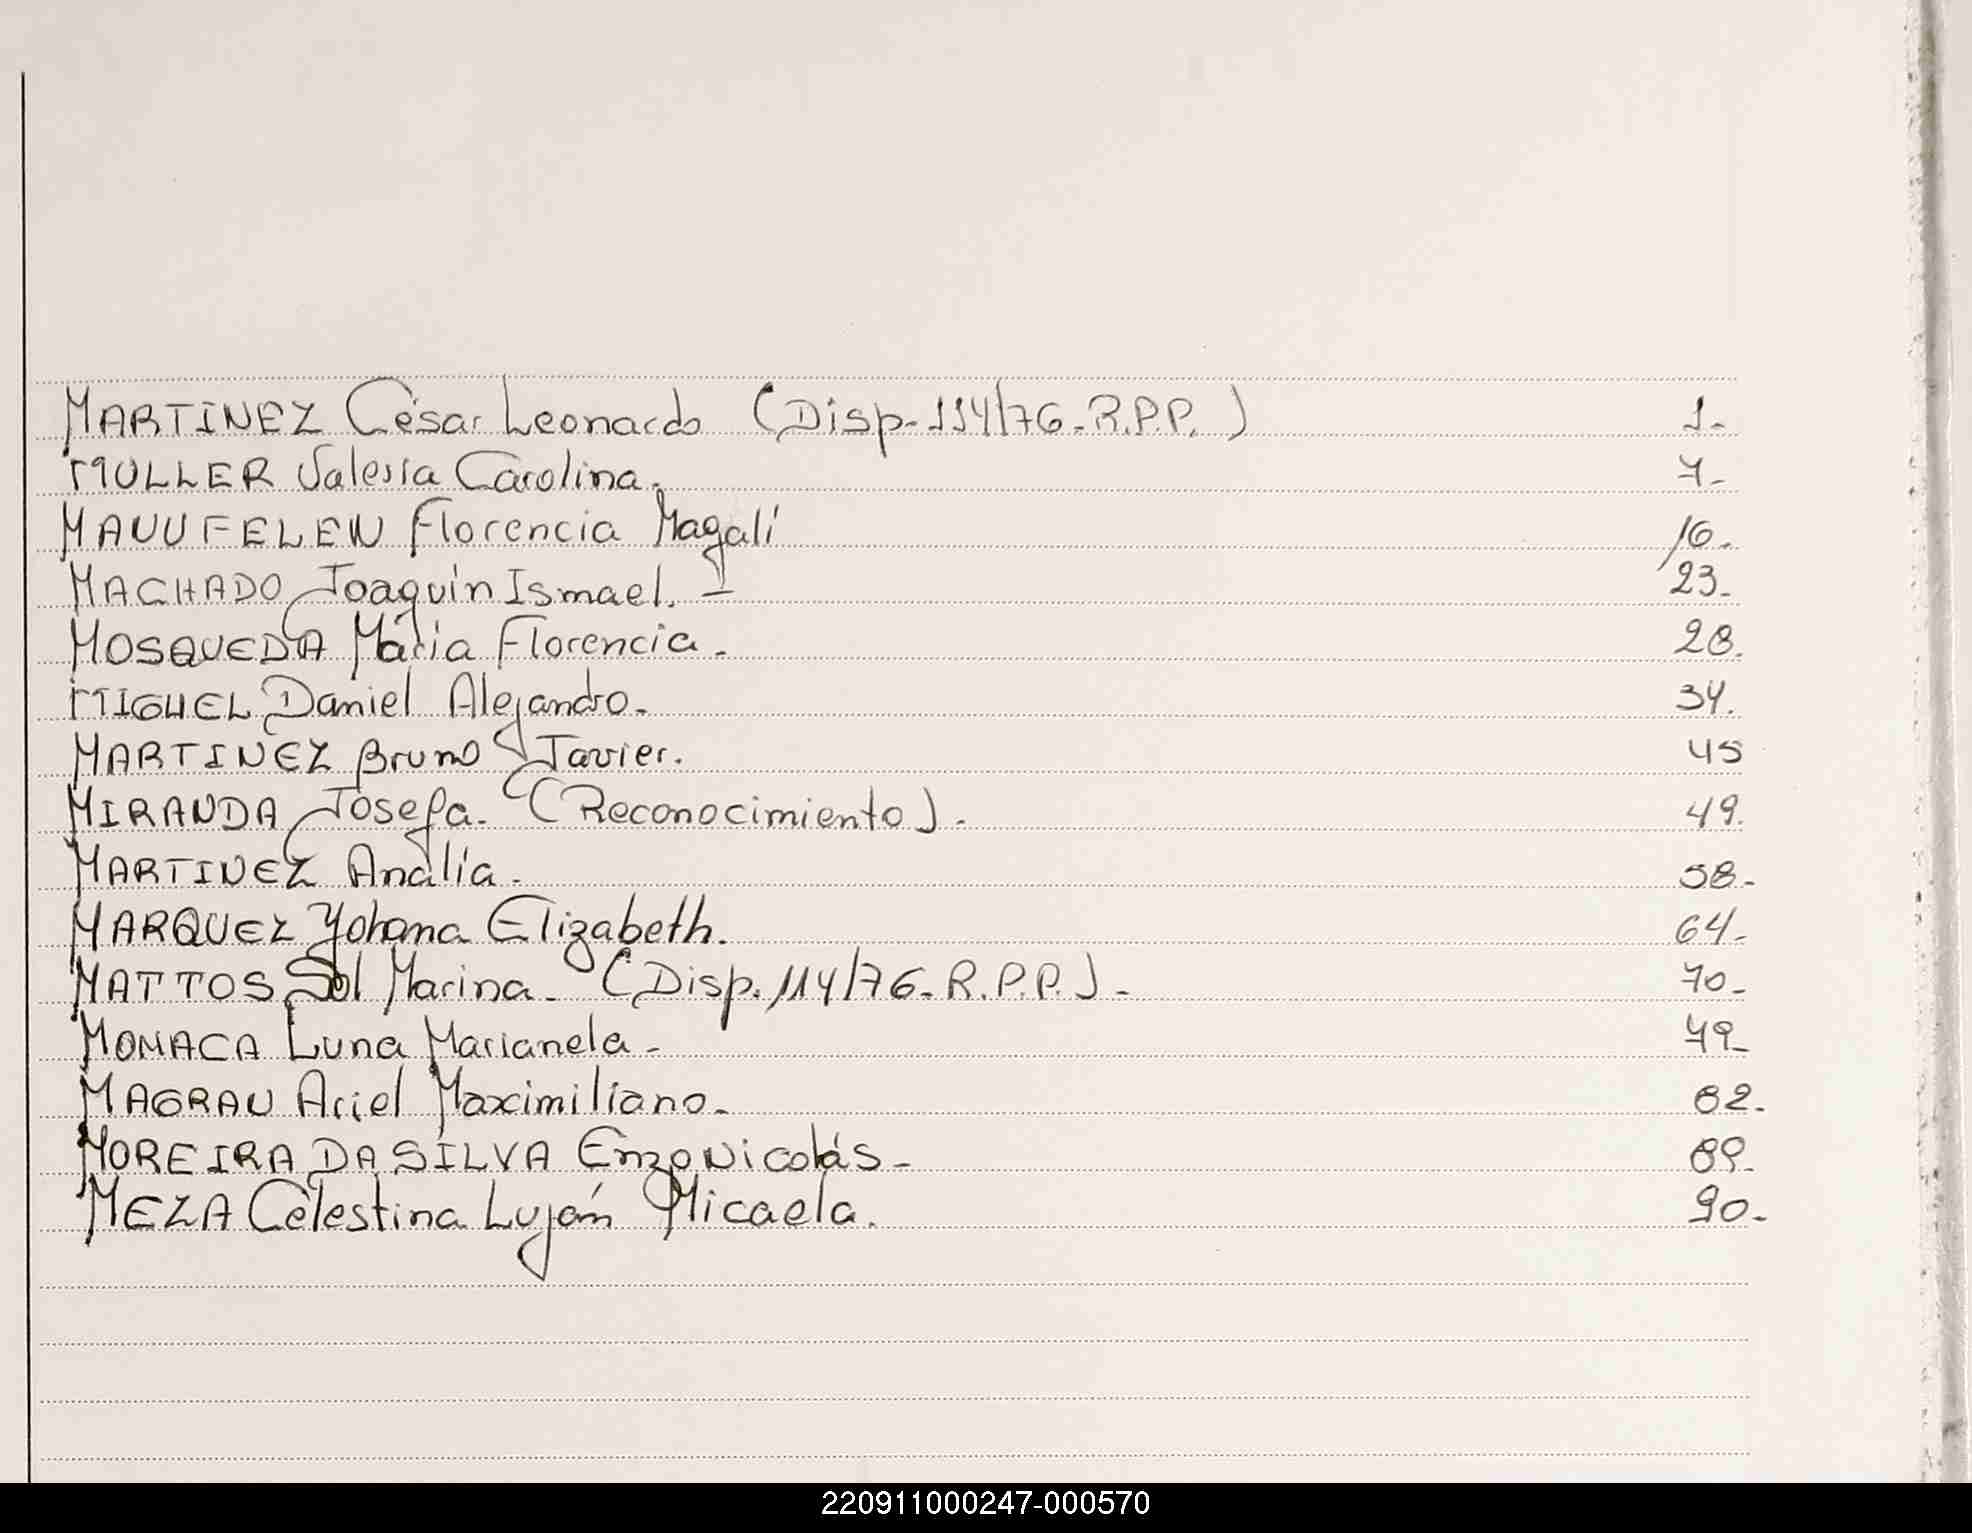 MARTINEZ César Leonardo (Disp. 114/76. R.P.P.) 1-
MULLER Valeria Carolina. 7-
MANUFELEN Florencia Magalí 16-
MACHADO Joaquín Ismael. - 23-
MOSQUEDA María Florencia. 28.
MIGUEL Daniel Alejandro. 34.
MARTINEZ Bruno Javier. 45
MIRANDA Josefa. (Reconocimiento). 49.
MARTINEZ Analía. 58-
MARQUEZ Yohana Elizabeth. 64-
MATTOS Sol Marina. (Disp. 114/76. R.P.P.) - 70-
MONACA Luna Marianela - 79-
MAGRAN Ariel Maximiliano. 82.
MOREIRA DA SILVA Enzo Nicolás - 89-
MEZA Celestina Luján Micaela. 90-
220911000247-000570